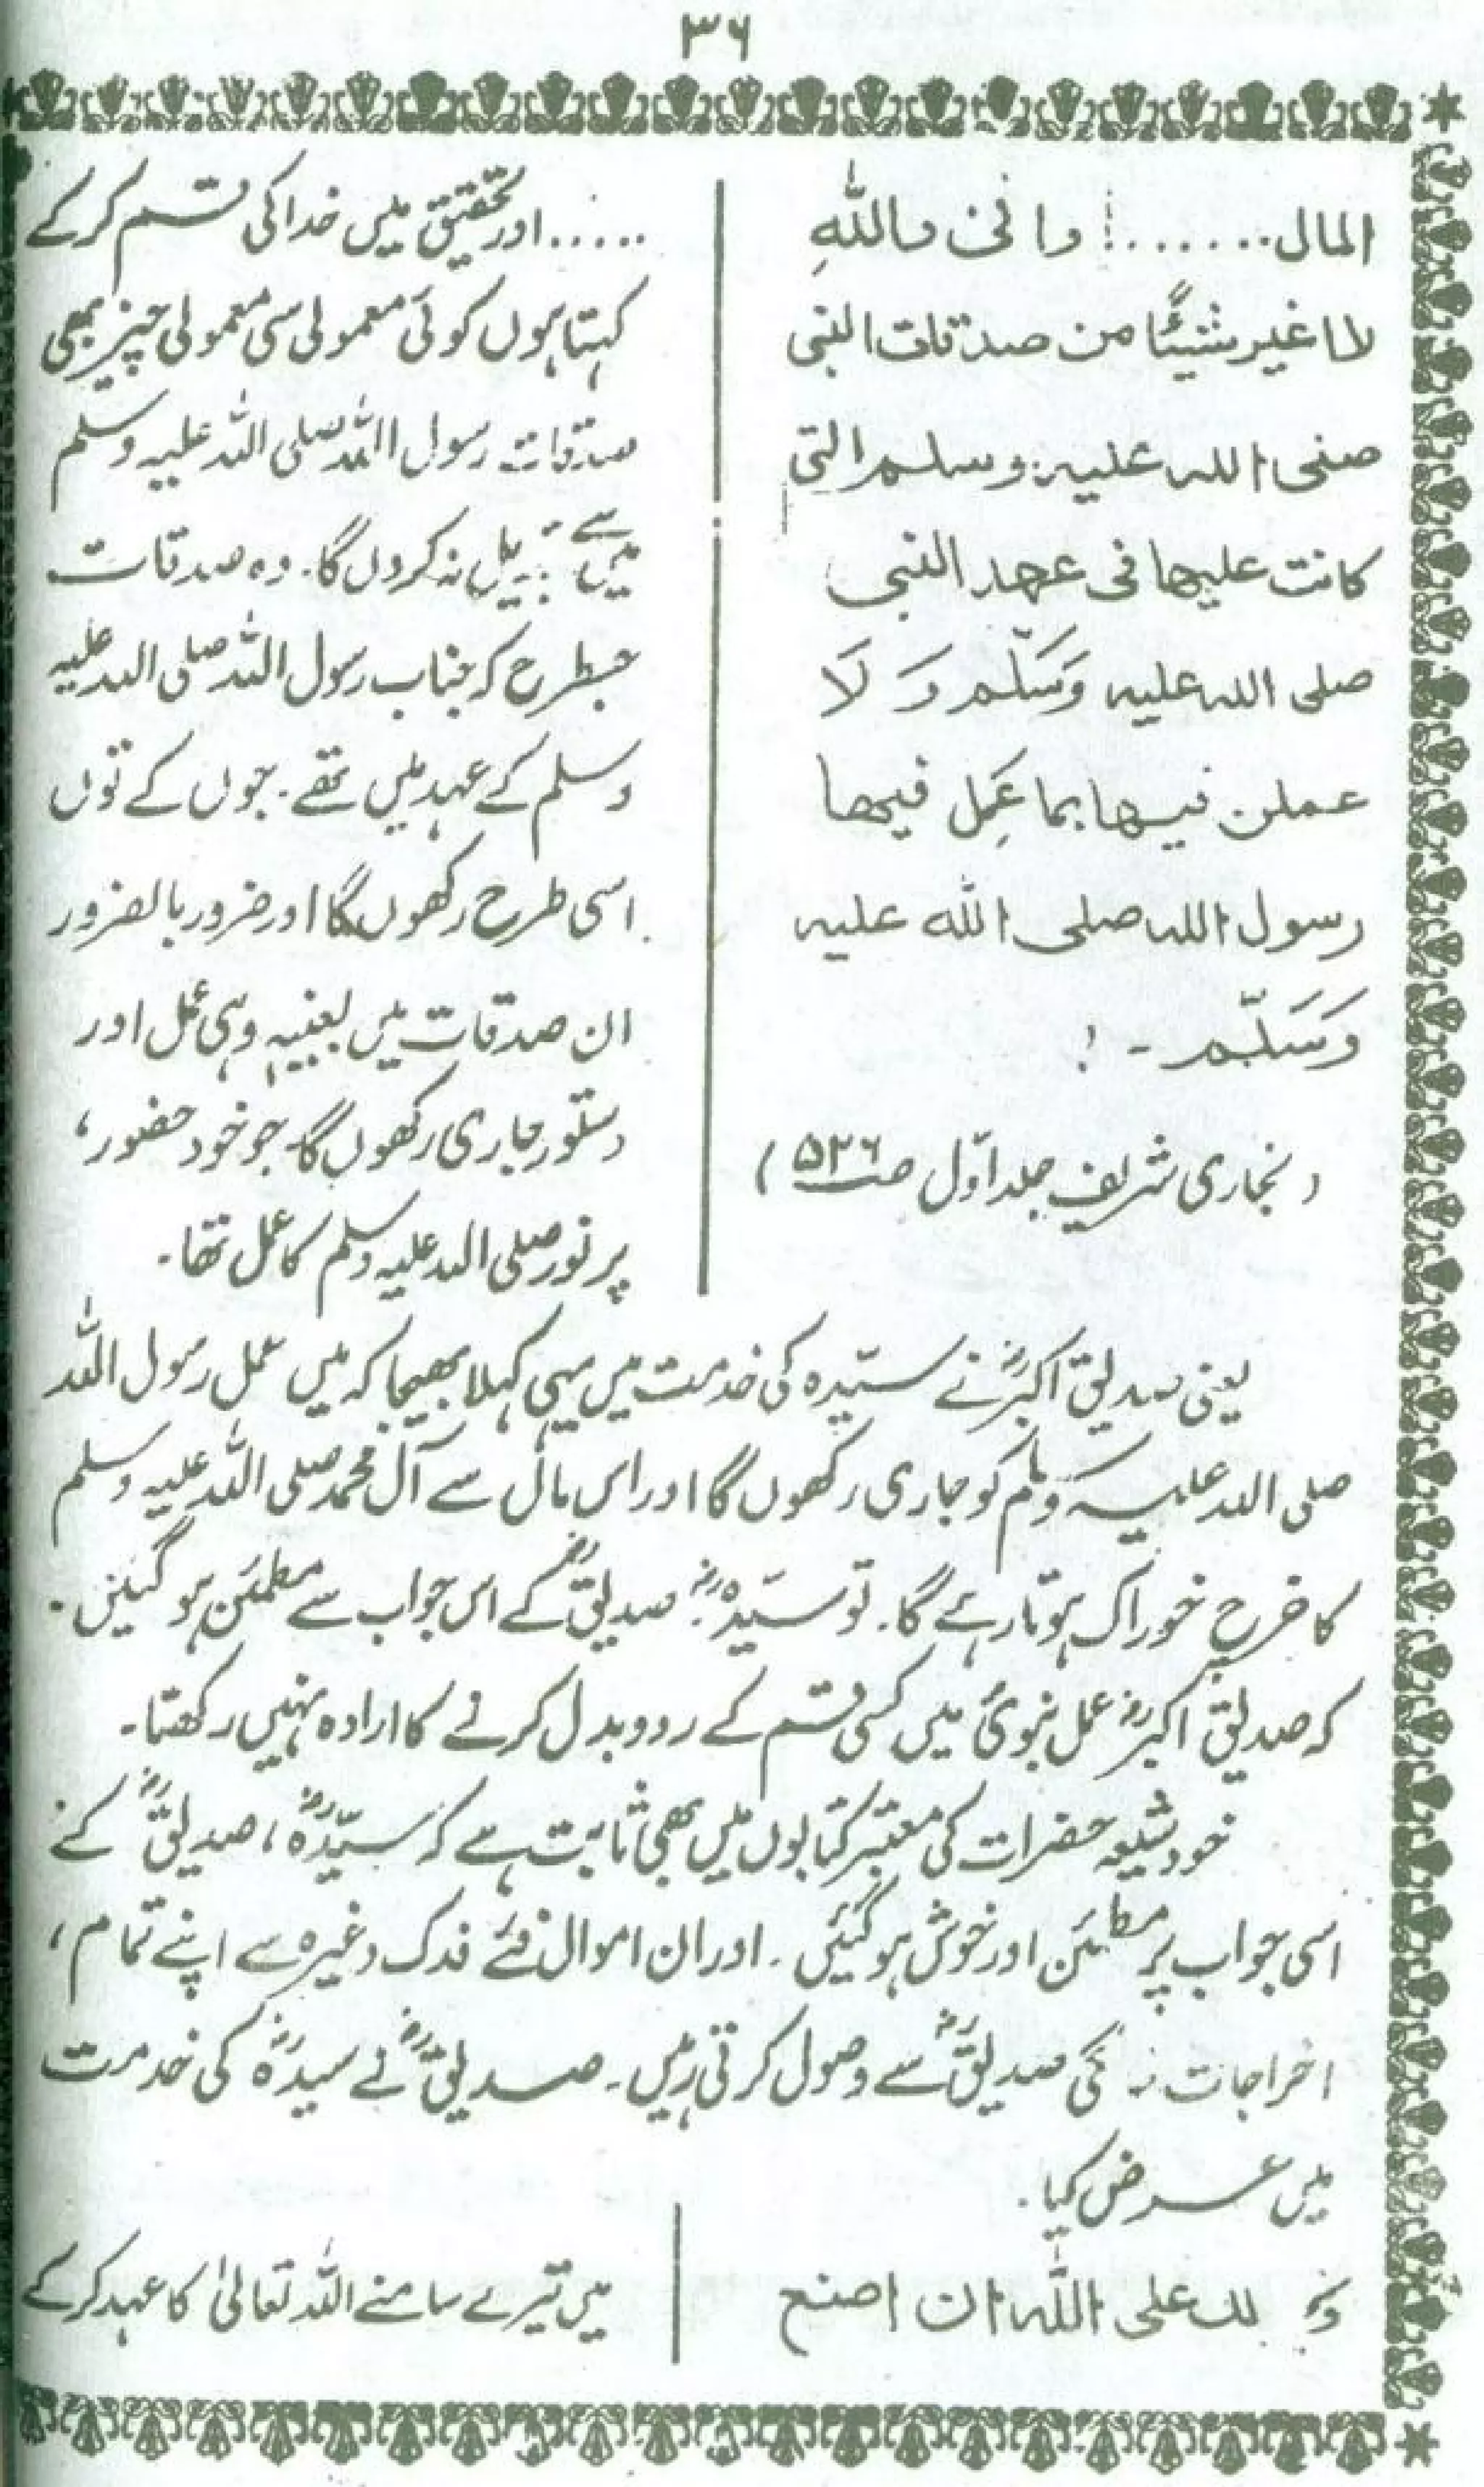 ۳۶
المال.......! وانی واللہِ
لا اغیر شیئًا من صدقات النبی
صلی اللہ علیہ وسلم التی
کانت علیہا فی عہد النبی
صلی اللہ علیہ وَسَلّم وَ لَا
عملن فیہا بما عَمِل فیہا
رسول اللہ صلی اللہ علیہ
وَسَلّم - !
(بخاری شریف جلد اوّل صـ ۵۲۶)
..... اور تحقیق میں خدا کی قسم کر کے
کہتا ہوں کوئی معمولی سی معمولی چیز بھی
صدقات رسول اللہ صلی اللہ علیہ وسلم
میں سے تبدیل نہ کروں گا۔ وہ صدقات
جسطرح کہ جناب رسول اللہ صلی اللہ علیہ
وسلم کے عہد میں تھے۔ جوں کے توں
اسی طرح رکھوں گا اور ضرور بالضرور
ان صدقات میں بعینہٖ وہی عمل اور
دستور جاری رکھوں گا۔ جو خود حضور،
پر نور صلی اللہ علیہ وسلم کا عمل تھا۔
یعنی صدیق اکبرؓ نے سیّدہ کی خدمت میں یہی کہلا بھیجا کہ میں عمل رسول اللہ
صلی اللہ علیہ وسلم کو جاری رکھوں گا اور اس مال سے آل محمد صلی اللہ علیہ وسلم
کا خرچ خوراک ہوتا رہے گا۔ تو سیّدہؓ صدیقؓ کے اس جواب سے مطمئن ہو گئیں۔
کہ صدیق اکبرؓ عمل نبویؐ میں کسی قسم کے ردوبدل کرنے کا ارادہ نہیں رکھتا۔
خود شیعہ حضرات کی معتبر کتابوں میں بھی ثابت ہے کہ سیّدہؓ، صدیقؓ کے
اسی جواب پر مطمئن اور خوش ہو گئیں۔ اور ان اموال فئے فدک وغیرہ سے اپنے تمام،
اخراجات زندگی صدیقؓ سے وصول کرتی رہیں۔ صدیقؓ نے سیدہؓ کی خدمت
میں عرض کیا۔
وَ لک علی اللہ ان اصنع
میں تیرے سامنے اللہ تعالیٰ کا عہد کر کے